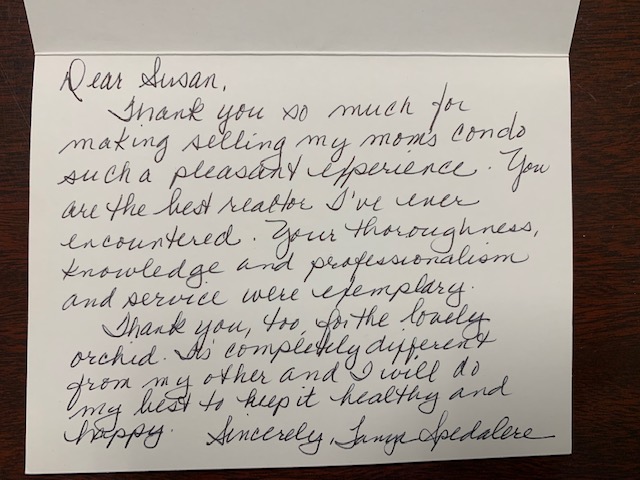 Dear Susan,
Thank you so much for
making selling my mom's condo
such a pleasant experience. You
are the best realtor I've ever
encountered. Your thoroughness,
knowledge and professionalism
and service were exemplary.
Thank you, too, for the lovely
orchid. It's completely different
from my other and I will do
my best to keep it healthy and
happy. Sincerely, Tanya Spedalere